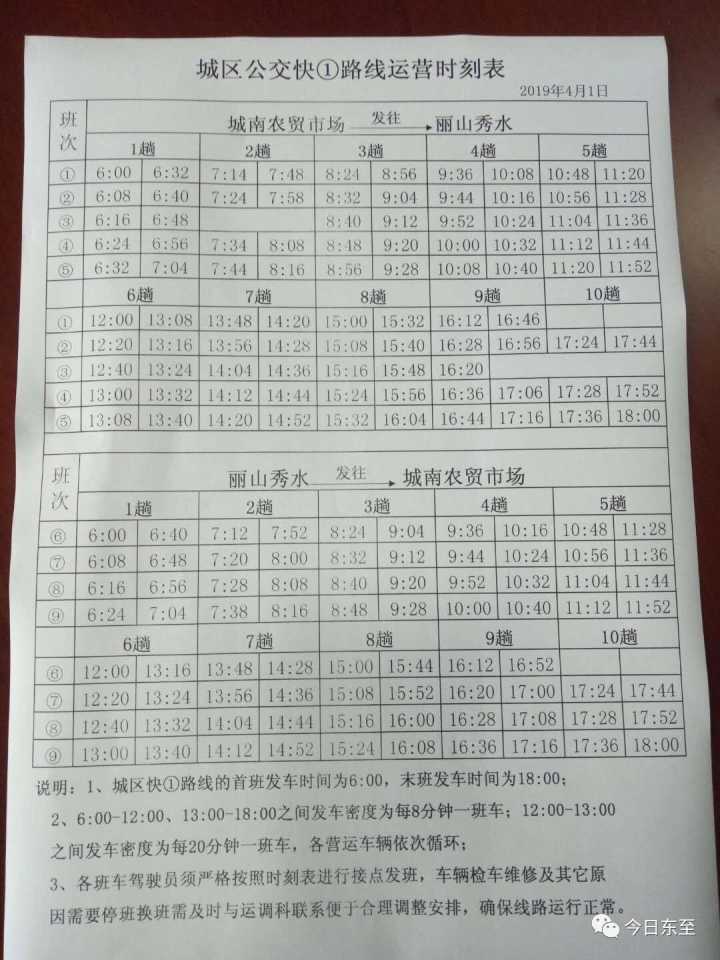 城区公交快①路线运营时刻表
2019年4月1日
班次 城南农贸市场 发往 丽山秀水
1趟 2趟 3趟 4趟 5趟
① 6:00 6:32 7:14 7:48 8:24 8:56 9:36 10:08 10:48 11:20
② 6:08 6:40 7:24 7:58 8:32 9:04 9:44 10:16 10:56 11:28
③ 6:16 6:48 8:40 9:12 9:52 10:24 11:04 11:36
④ 6:24 6:56 7:34 8:08 8:48 9:20 10:00 10:32 11:12 11:44
⑤ 6:32 7:04 7:44 8:16 8:56 9:28 10:08 10:40 11:20 11:52
6趟 7趟 8趟 9趟 10趟
① 12:00 13:08 13:48 14:20 15:00 15:32 16:12 16:46
② 12:20 13:16 13:56 14:28 15:08 15:40 16:28 16:56 17:24 17:44
③ 12:40 13:24 14:04 14:36 15:16 15:48 16:20
④ 13:00 13:32 14:12 14:44 15:24 15:56 16:36 17:06 17:28 17:52
⑤ 13:08 13:40 14:20 14:52 15:32 16:04 16:44 17:16 17:36 18:00
班次 丽山秀水 发往 城南农贸市场
1趟 2趟 3趟 4趟 5趟
⑥ 6:00 6:40 7:12 7:52 8:24 9:04 9:36 10:16 10:48 11:28
⑦ 6:08 6:48 7:20 8:00 8:32 9:12 9:44 10:24 10:56 11:36
⑧ 6:16 6:56 7:28 8:08 8:40 9:20 9:52 10:32 11:04 11:44
⑨ 6:24 7:04 7:38 8:16 8:48 9:28 10:00 10:40 11:12 11:52
6趟 7趟 8趟 9趟 10趟
⑥ 12:00 13:16 13:48 14:28 15:00 15:44 16:12 16:52
⑦ 12:20 13:24 13:56 14:36 15:08 15:52 16:20 17:00 17:24 17:44
⑧ 12:40 13:32 14:04 14:44 15:16 16:00 16:28 17:08 17:28 17:52
⑨ 13:00 13:40 14:12 14:52 15:24 16:08 16:36 17:16 17:36 18:00
说明：1、城区快①路线的首班发车时间为6:00，末班发车时间为18:00；
2、6:00-12:00、13:00-18:00之间发车密度为每8分钟一班车；12:00-13:00
之间发车密度为每20分钟一班车，各营运车辆依次循环；
3、各班车驾驶员须严格按照时刻表进行接点发班，车辆检车维修及其它原
因需要停班换班需及时与运调科联系便于合理调整安排，确保线路运行正常。
今日东至